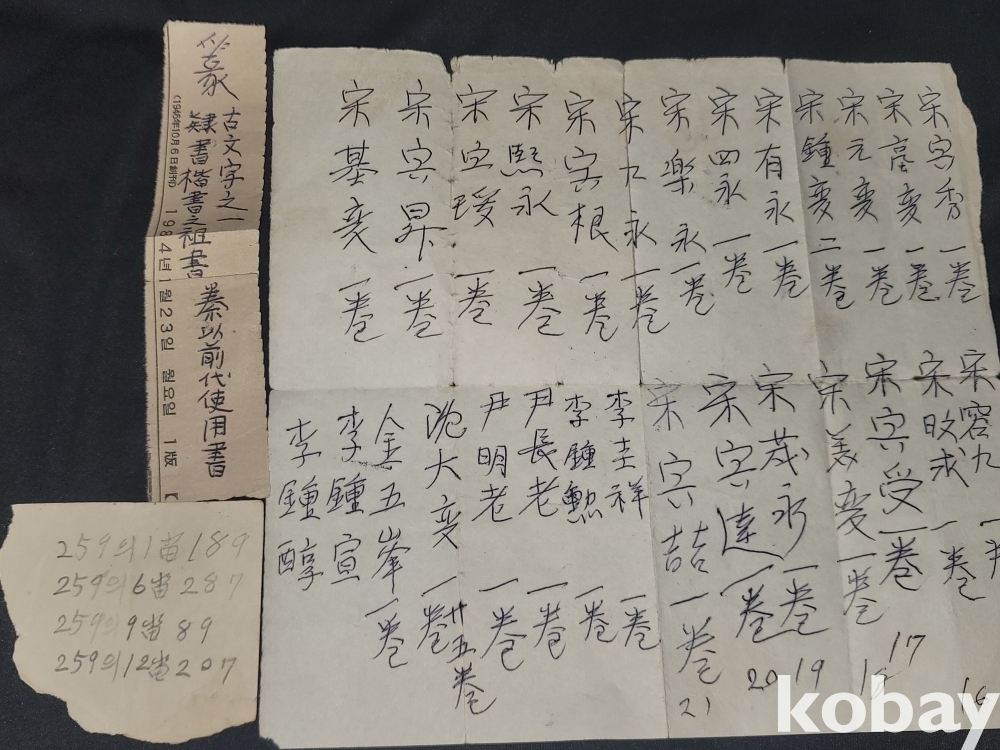 篆
古文字之一
隷書楷書之祖書
秦以前代使用書
(1946年10月6日創刊)
1984년 1월 23일 월요일 1版
259의1畓189
259의6畓287
259의9畓89
259의12畓207
宋寅秀 一巻
宋高变 一巻
宋元变 一巻
宋鍾变 二巻
宋有永 一巻
宋四永 一巻
宋樂永 一巻
宋九永 一巻
宋寅根 一巻
宋熙永 一巻
宋寅瑗 一巻
宋寅昇 一巻
宋基变 一巻
宋容九 一
16
宋畋求 一巻
宋寅受 一巻
17
宋美变 一巻
18
宋茂永 一巻
19
宋寅達 一巻
20
宋寅喆 一巻
21
李圭祥 一巻
李鍾勲 一巻
尹長老 一巻
尹明老 一巻
沈大变 一巻
廿五巻
金五峯 一巻
李鍾宣
李鍾醇
kobay